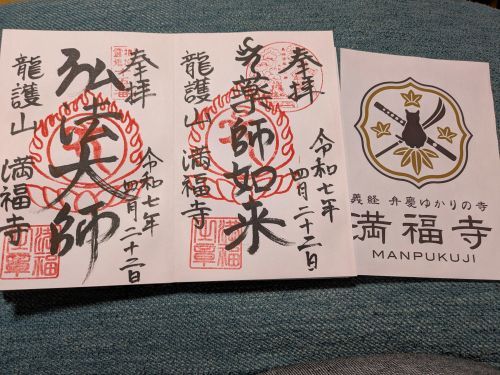 奉拝
薬師如来
龍護山 満福寺
令和七年
四月二十二日
奉拝
弘法大師
龍護山 満福寺
令和七年
四月二十二日
義経 弁慶ゆかりの寺
満福寺
MANPUKUJI